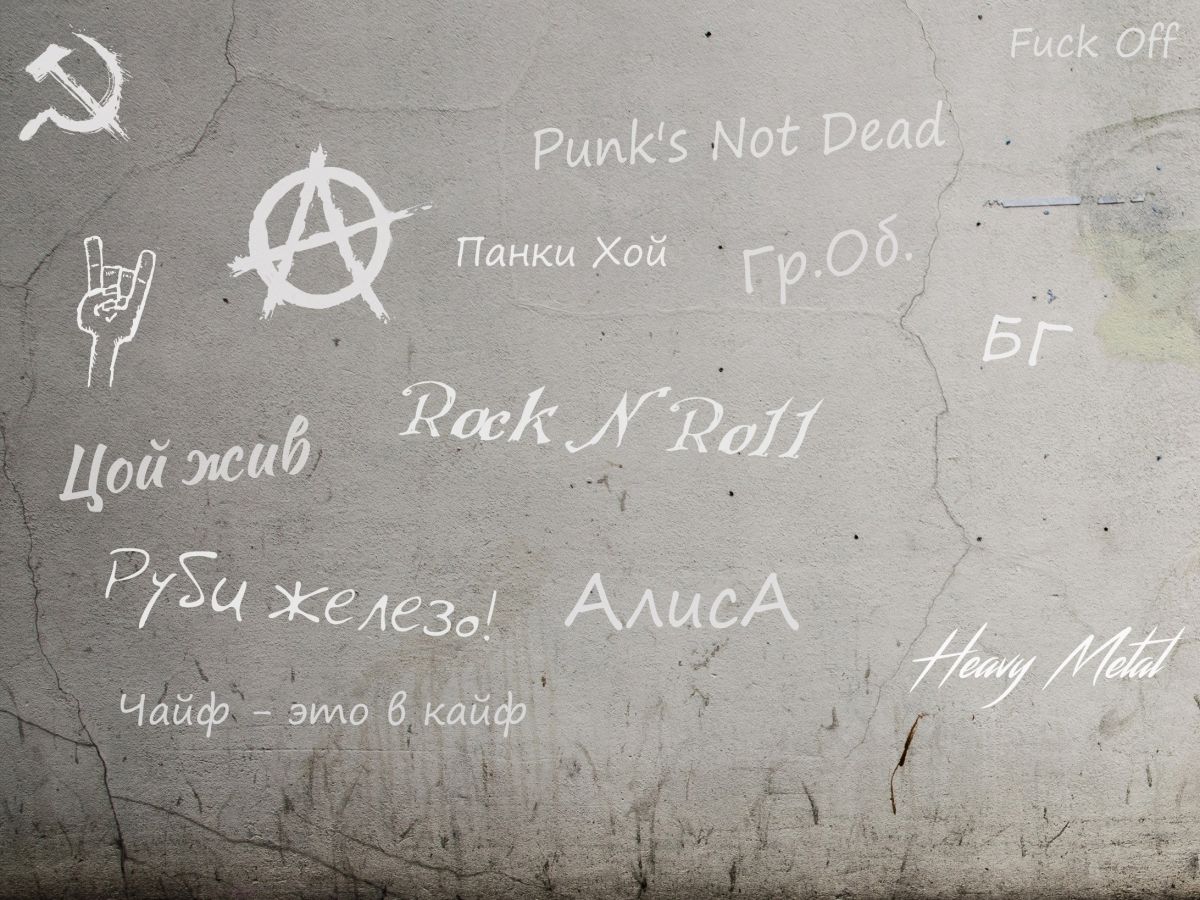 Fuck Off
Punk's Not Dead
Панки Хой
Гр.Об.
БГ
Rock N Roll
Цой жив
Руби железо!
АлисА
Heavy Metal
Чайф - это в кайф